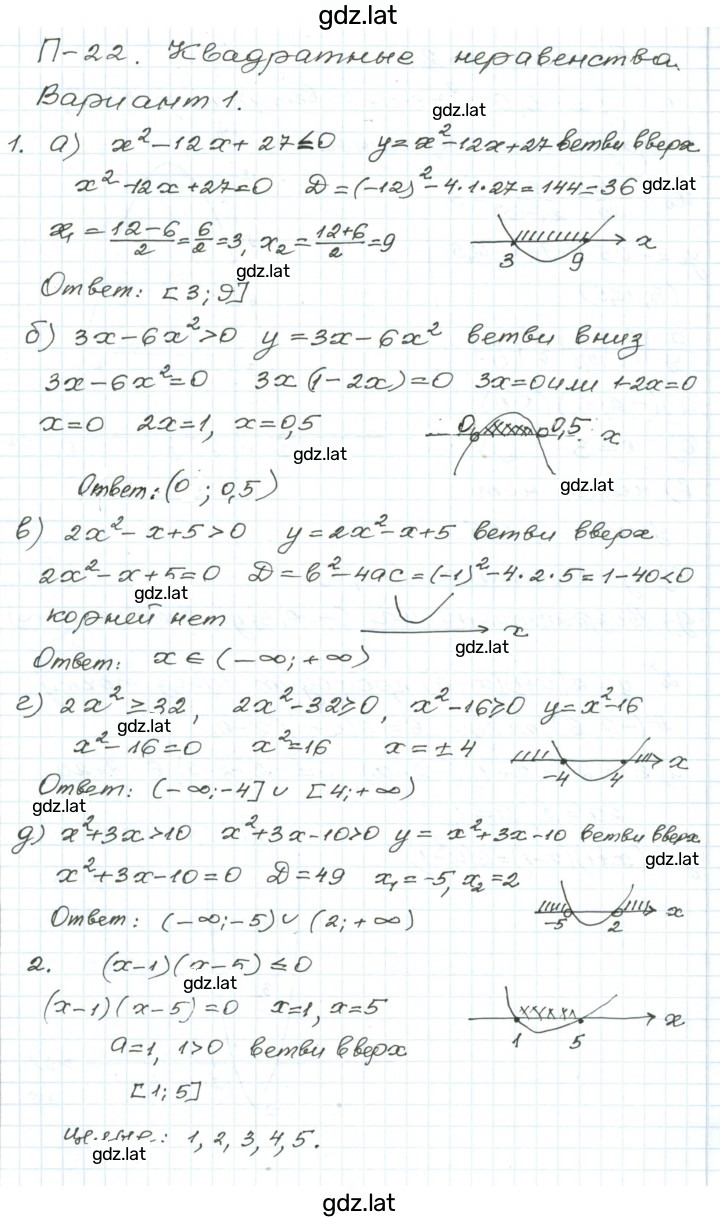 gdz.lat
П-22. Квадратные неравенства.
Вариант 1.
gdz.lat
1. а) x²-12x+27≤0 y=x²-12x+27 ветви вверх
x²-12x+27=0 D=(-12)²-4·1·27=144=36 gdz.lat
x₁=(12-6)/2=6/2=3, x₂=(12+6)/2=9 3 9 x
gdz.lat
Ответ: [3;9]
б) 3x-6x²>0 y=3x-6x² ветви вниз
3x-6x²=0 3x(1-2x)=0 3x=0 или 1-2x=0
x=0 2x=1, x=0,5 0 0,5 x
gdz.lat
Ответ: (0; 0,5) gdz.lat
в) 2x²-x+5>0 y=2x²-x+5 ветви вверх
2x²-x+5=0 D=b²-4ac=(-1)²-4·2·5=1-40<0
gdz.lat
корней нет x
gdz.lat
Ответ: x∈(-∞;+∞)
г) 2x²≥32, 2x²-32≥0, x²-16≥0 y=x²-16
gdz.lat
x²-16=0 x²=16 x=±4 -4 4 x
Ответ: (-∞;-4]∪[4;+∞)
gdz.lat
д) x²+3x>10 x²+3x-10>0 y=x²+3x-10 ветви вверх
gdz.lat
x²+3x-10=0 D=49 x₁=-5, x₂=2
Ответ: (-∞;-5)∪(2;+∞) -5 2 x
2. (x-1)(x-5)≤0
gdz.lat
(x-1)(x-5)=0 x=1, x=5 1 5 x
a=1, 1>0 ветви вверх
[1;5]
1, 2, 3, 4, 5.
gdz.lat
gdz.lat